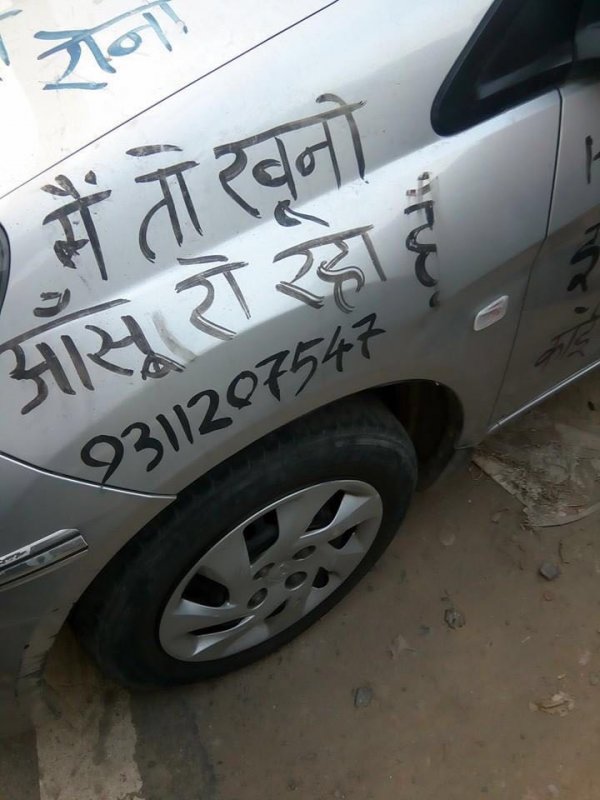 राना
मैं तो खूनो
आँसू रो रहा हूँ
9311207547